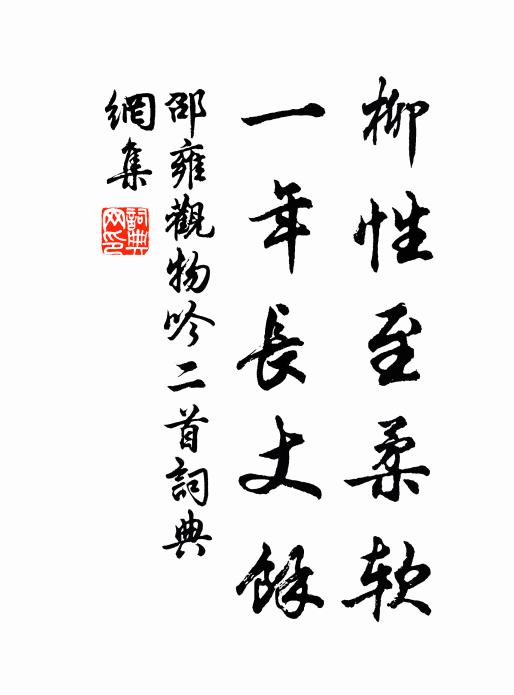 柳性至柔软
一年長丈餘
邵雍觀物吟二首詞典
網集
詞典
网印